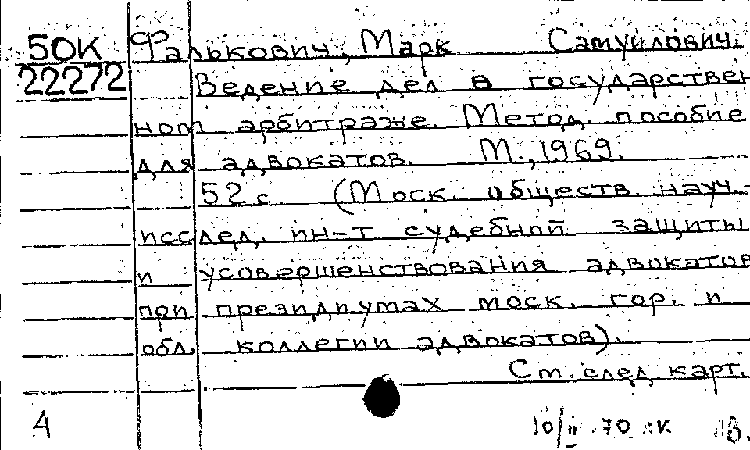 50К Фалькович, Марк Самуилович.
22272 Ведение дел в государствен
ном арбитраже. Метод. пособие
для адвокатов. М., 1969.
52 с. (Моск. обществ. науч.
исслед. ин-т судебной защиты
и усовершенствования адвокатов
при президиумах моск. гор. и
обл. коллегии адвокатов).
См. след. карт.
А 10/II.70 К